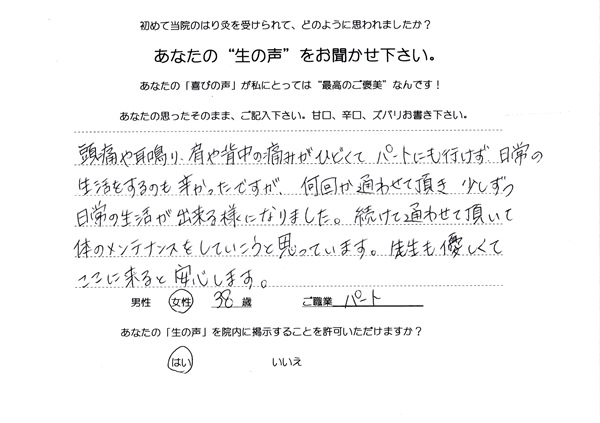 初めて当院のはり灸を受けられて、どのように思われましたか？
あなたの“生の声”をお聞かせ下さい。
あなたの「喜びの声」が私にとっては“最高のご褒美”なんです！
あなたの思ったそのまま、ご記入下さい。甘口、辛口、ズバリお書き下さい。
頭痛や耳鳴り、肩や背中の痛みがひどくて パートにも行けず 日常の
生活をするのも 辛かったですが、何回か通わせて頂き 少しずつ
日常の生活が 出来る様になりました。続けて通わせて頂いて
体のメンテナンスをしていこうと思っています。先生も優しくて
ここに来ると 安心します。
男性 女性 38 歳 ご職業 パート
あなたの「生の声」を院内に掲示することを許可いただけますか？
はい いいえ